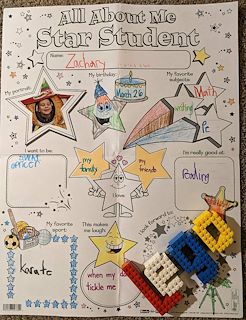 All About Me
Star Student
Name: Zachary
My portrait:
My birthday:
March 26
My favorite subjects:
Math
writing
Pe
I want to be:
officer
my family
my friends
I love
I'm really good at:
reading
My favorite sport:
Karate
This makes me laugh:
when my da
tickle me
I look forward to:
LEGO